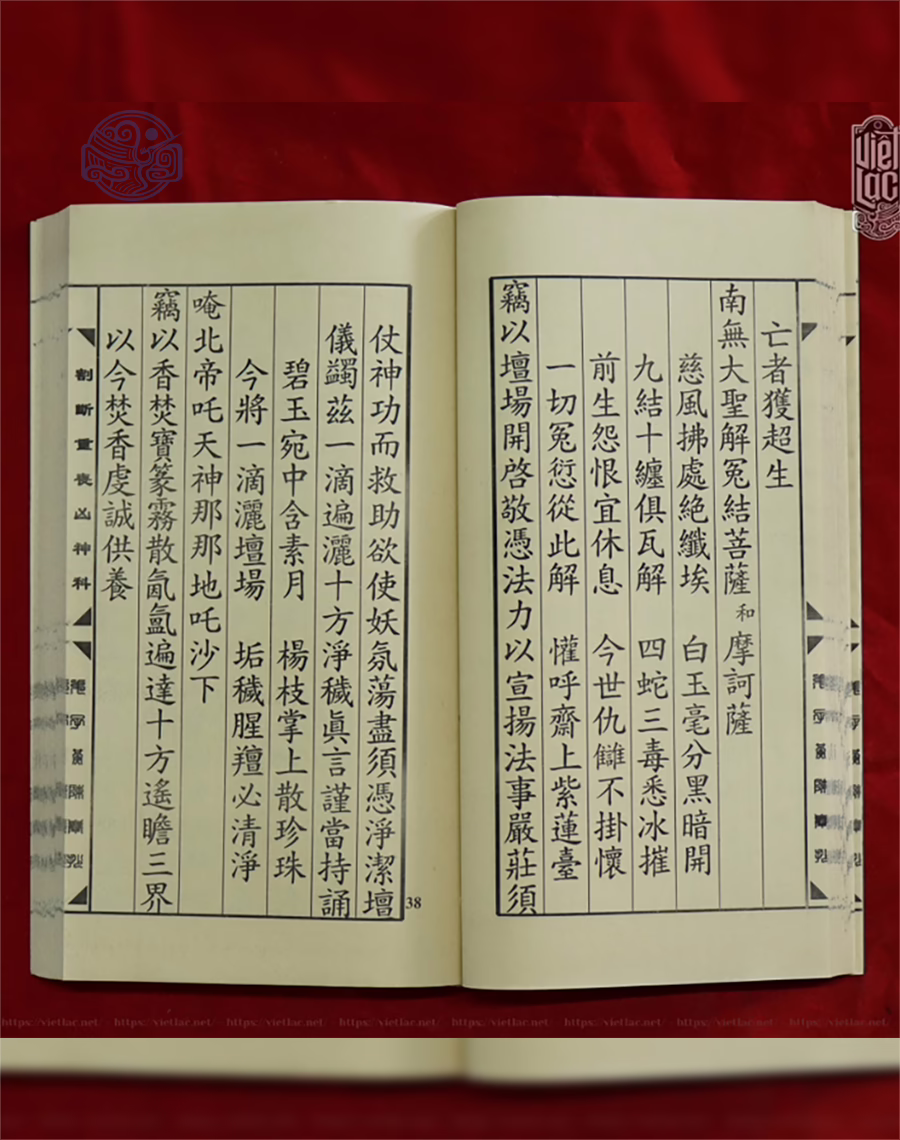 亡者獲超生
南無大聖解冤結菩薩 和 摩訶薩
慈風拂處絶纖埃 白玉毫分黑暗開
九結十纏俱瓦解 四蛇三毒悉冰摧
前生怨恨宜休息 今世仇讎不掛懷
一切冤愆從此解 懽呼齋上紫蓮臺
竊以壇場開啓敬憑法力以宣揚法事嚴莊須
仗神功而救助欲使妖氛蕩盡須憑淨潔壇
儀蠲茲一滴遍灑十方淨穢眞言謹當持誦
碧玉宛中含素月 楊枝掌上散珍珠
今將一滴灑壇場 垢穢腥羶必清淨
唵北帝吒天神那那地吒沙下
竊以香焚寶篆霧散氤氳遍達十方遙瞻三界
以今焚香虔誠供養
割斷重喪凶神科
38
Việt Lạc
https://vietlac.net/ https://vietlac.net/ https://vietlac.net/ https://vietlac.net/ https://vietlac.net/ https://vietlac.net/ https://vietlac.net/ https://vietlac.net/